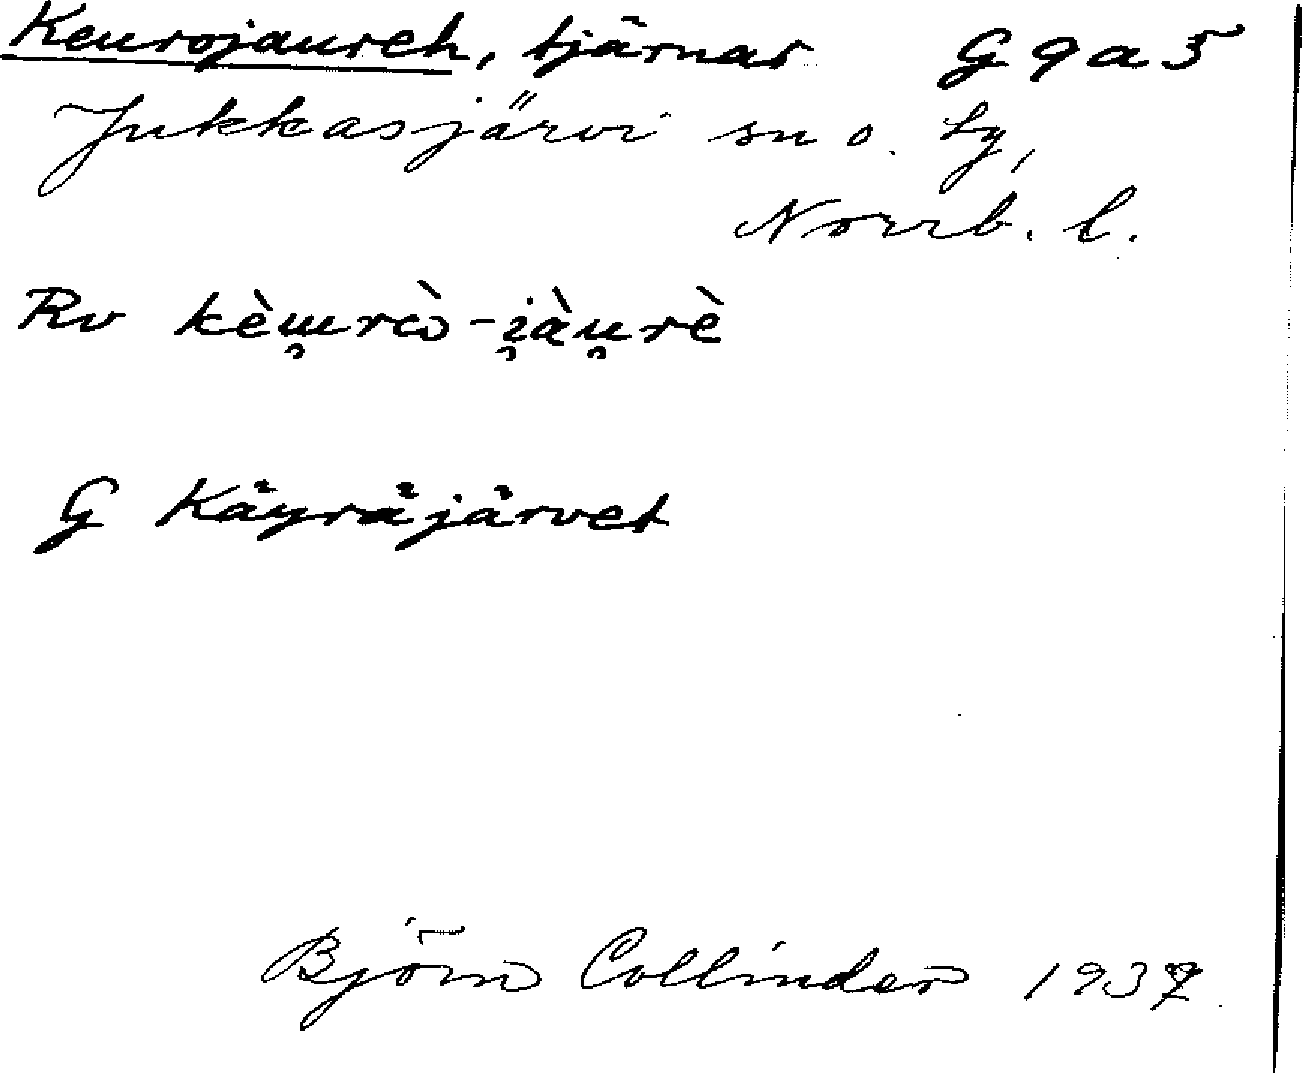 Keurojaureh, tjärnar G 9 a 5
Jukkasjärvi sn o. tg,
Norrb. l.
Rv kèɯ̯rɷ̀-i̯àu̯rè
G Käyräjärvet
Björn Collinder 1937